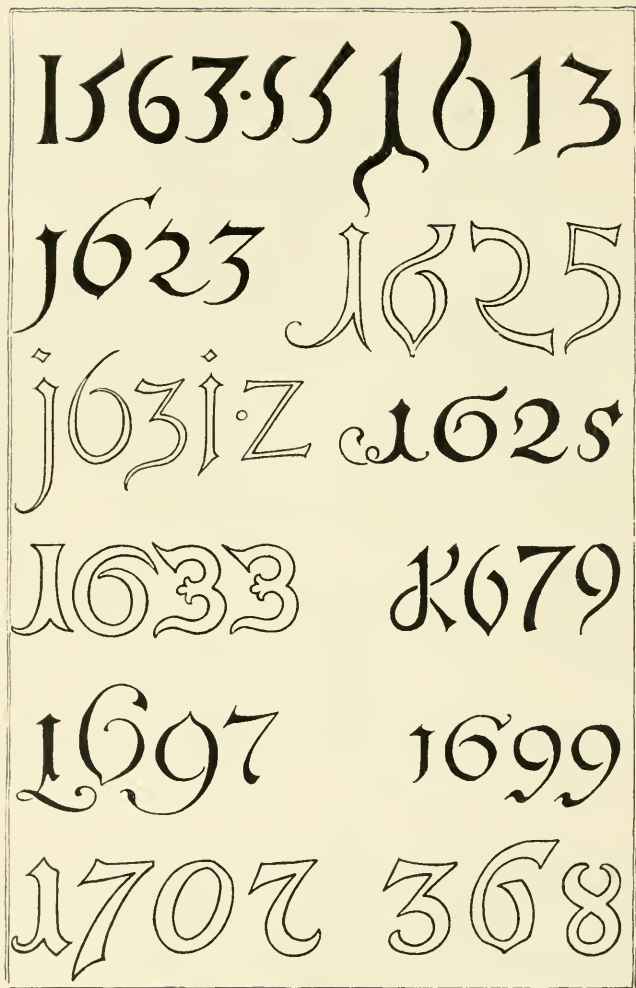 1563·55 1613
1623 1625
1631·Z 1625
1633 1679
1697 1699
1702 368